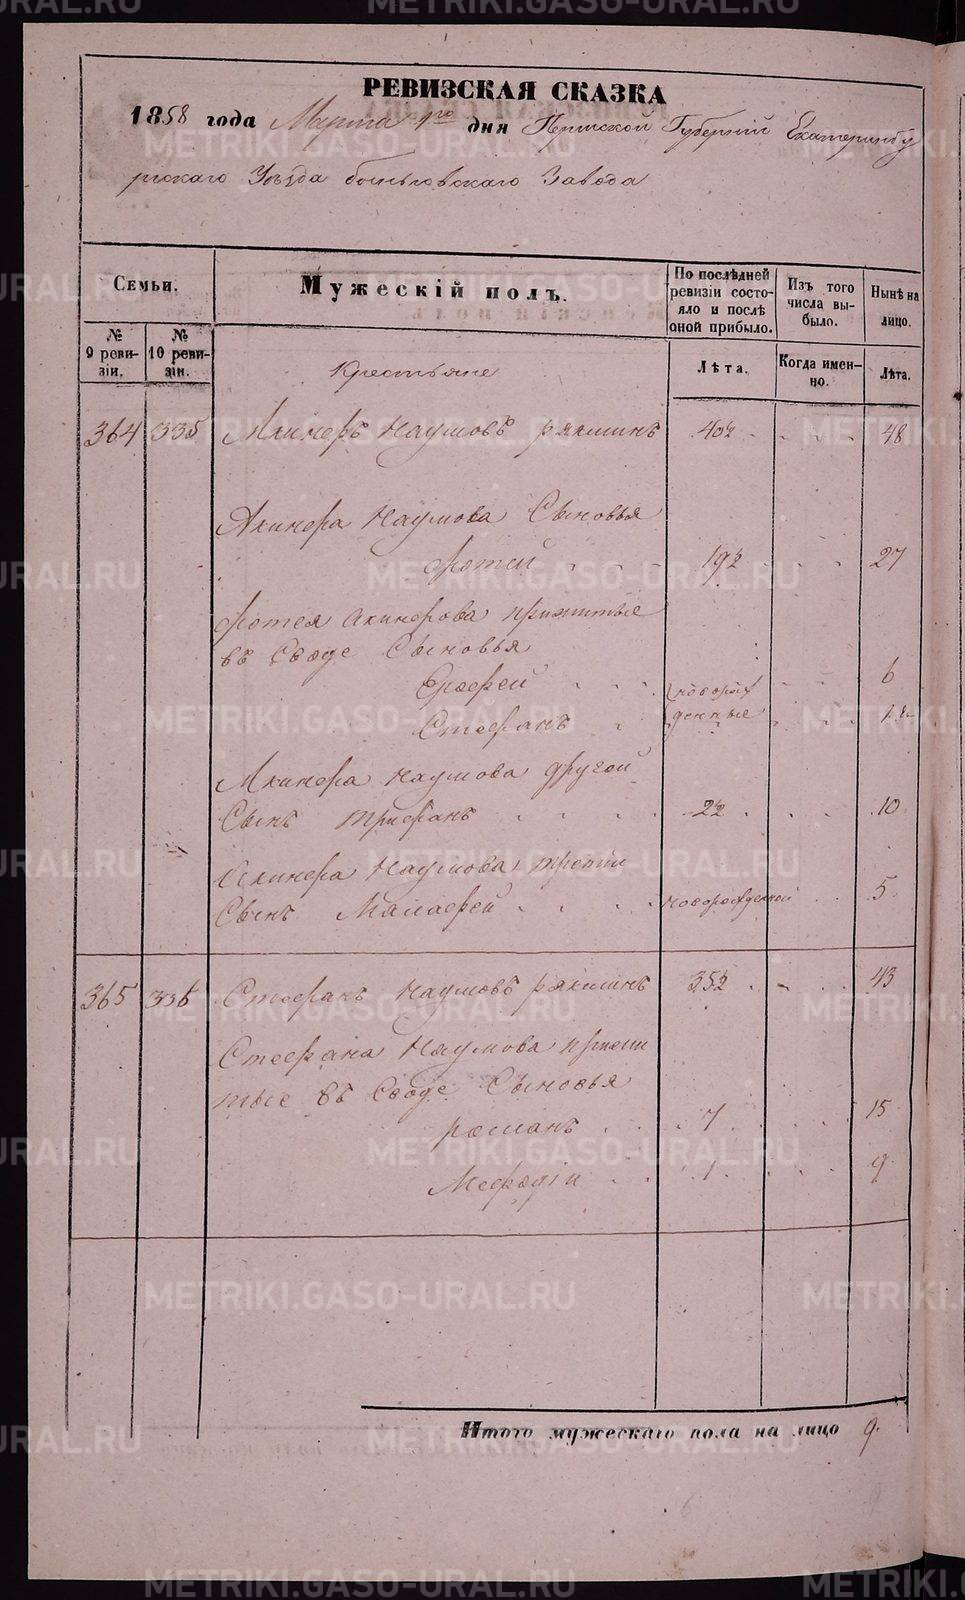 РЕВИЗСКАЯ СКАЗКА
1858 года Марта 1го дня Пермской Губерніи Екатеринбу
ргскаго Уѣзда Завода
Семьи.
Мужескій полъ.
По послѣдней ревизіи состояло и послѣ оной прибыло.
Изъ того числа выбыло.
Нынѣ на лицо.
№ 9 ревизіи.
№ 10 ревизіи.
Лѣта.
Когда именно.
Лѣта.
Крестьяне
364 335 Акинфъ Наумовъ 40½ 48
Акинфа Наумова Сыновья
Фотей 19½ 27
Фотея Акинфова прижитые
въ Сводѣ Сыновья
Ерофей новорож 6
Стефанъ денные
Акинфа Наумова другой
Сынъ Трифанъ 2½ 10
Акинфа Наумова третій
Сынъ Малафей новорожденной 5
365 336 Стефанъ Наумовъ 35½ 43
Стефана Наумова прижи
тые въ Сводѣ Сыновья
Романъ 7 15
Мефодій 1 9
Итого мужескаго пола на лицо 9
METRIKI.GASO-URAL.RU